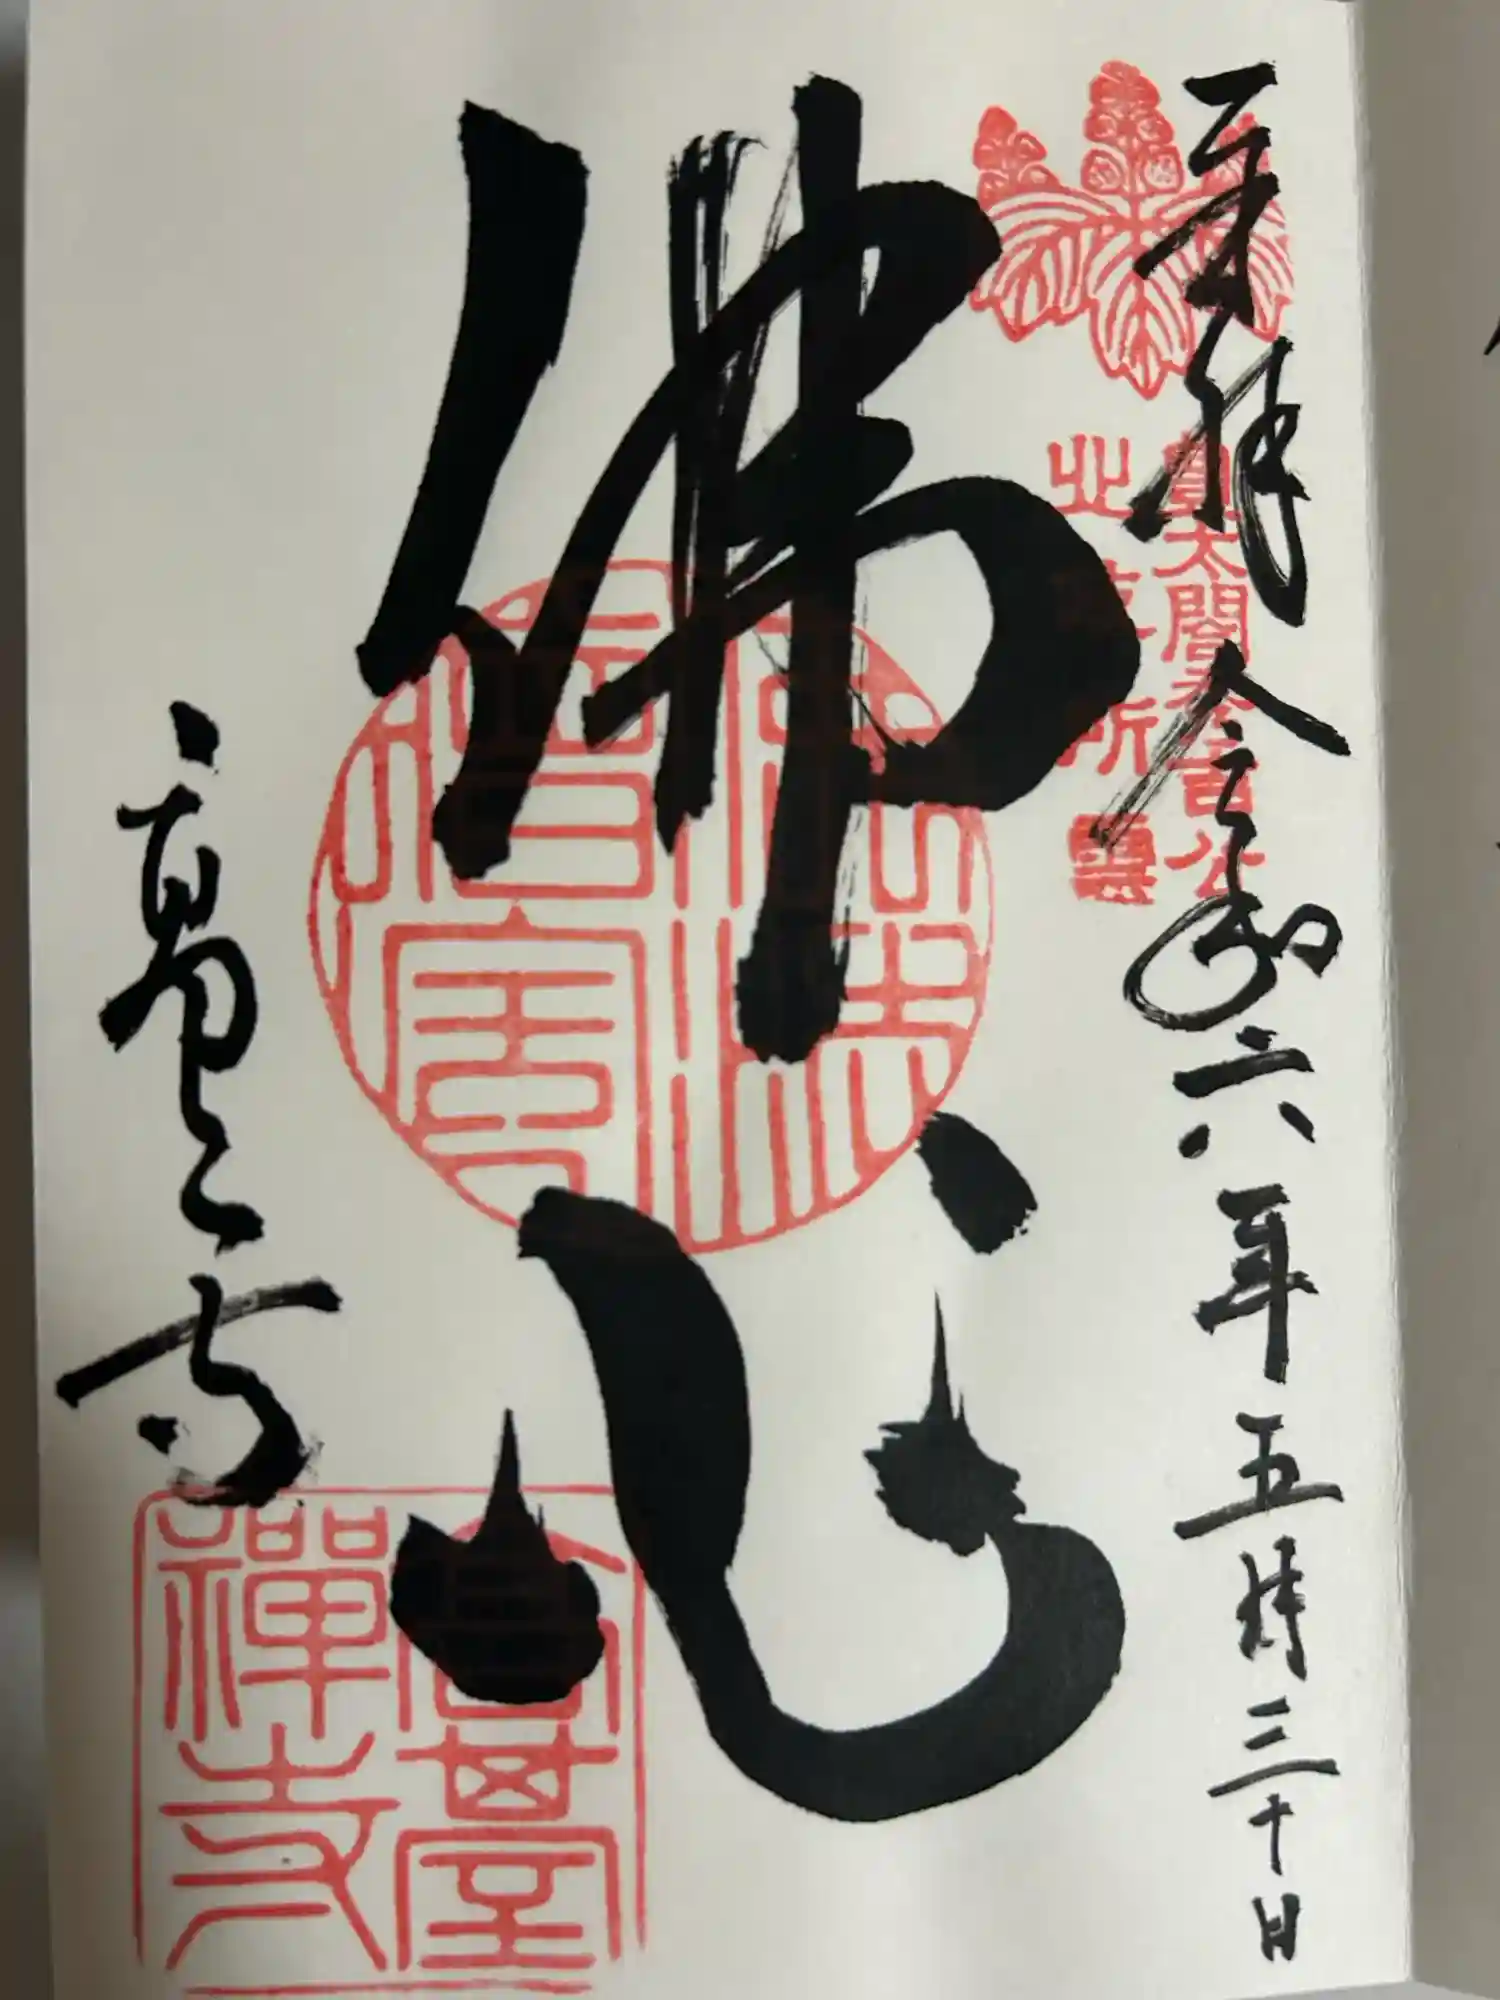 奉拝 令和六年五月三十日
豊太閤秀吉公
北政所
佛心
佛法
僧寶
高台寺
高臺
禪寺